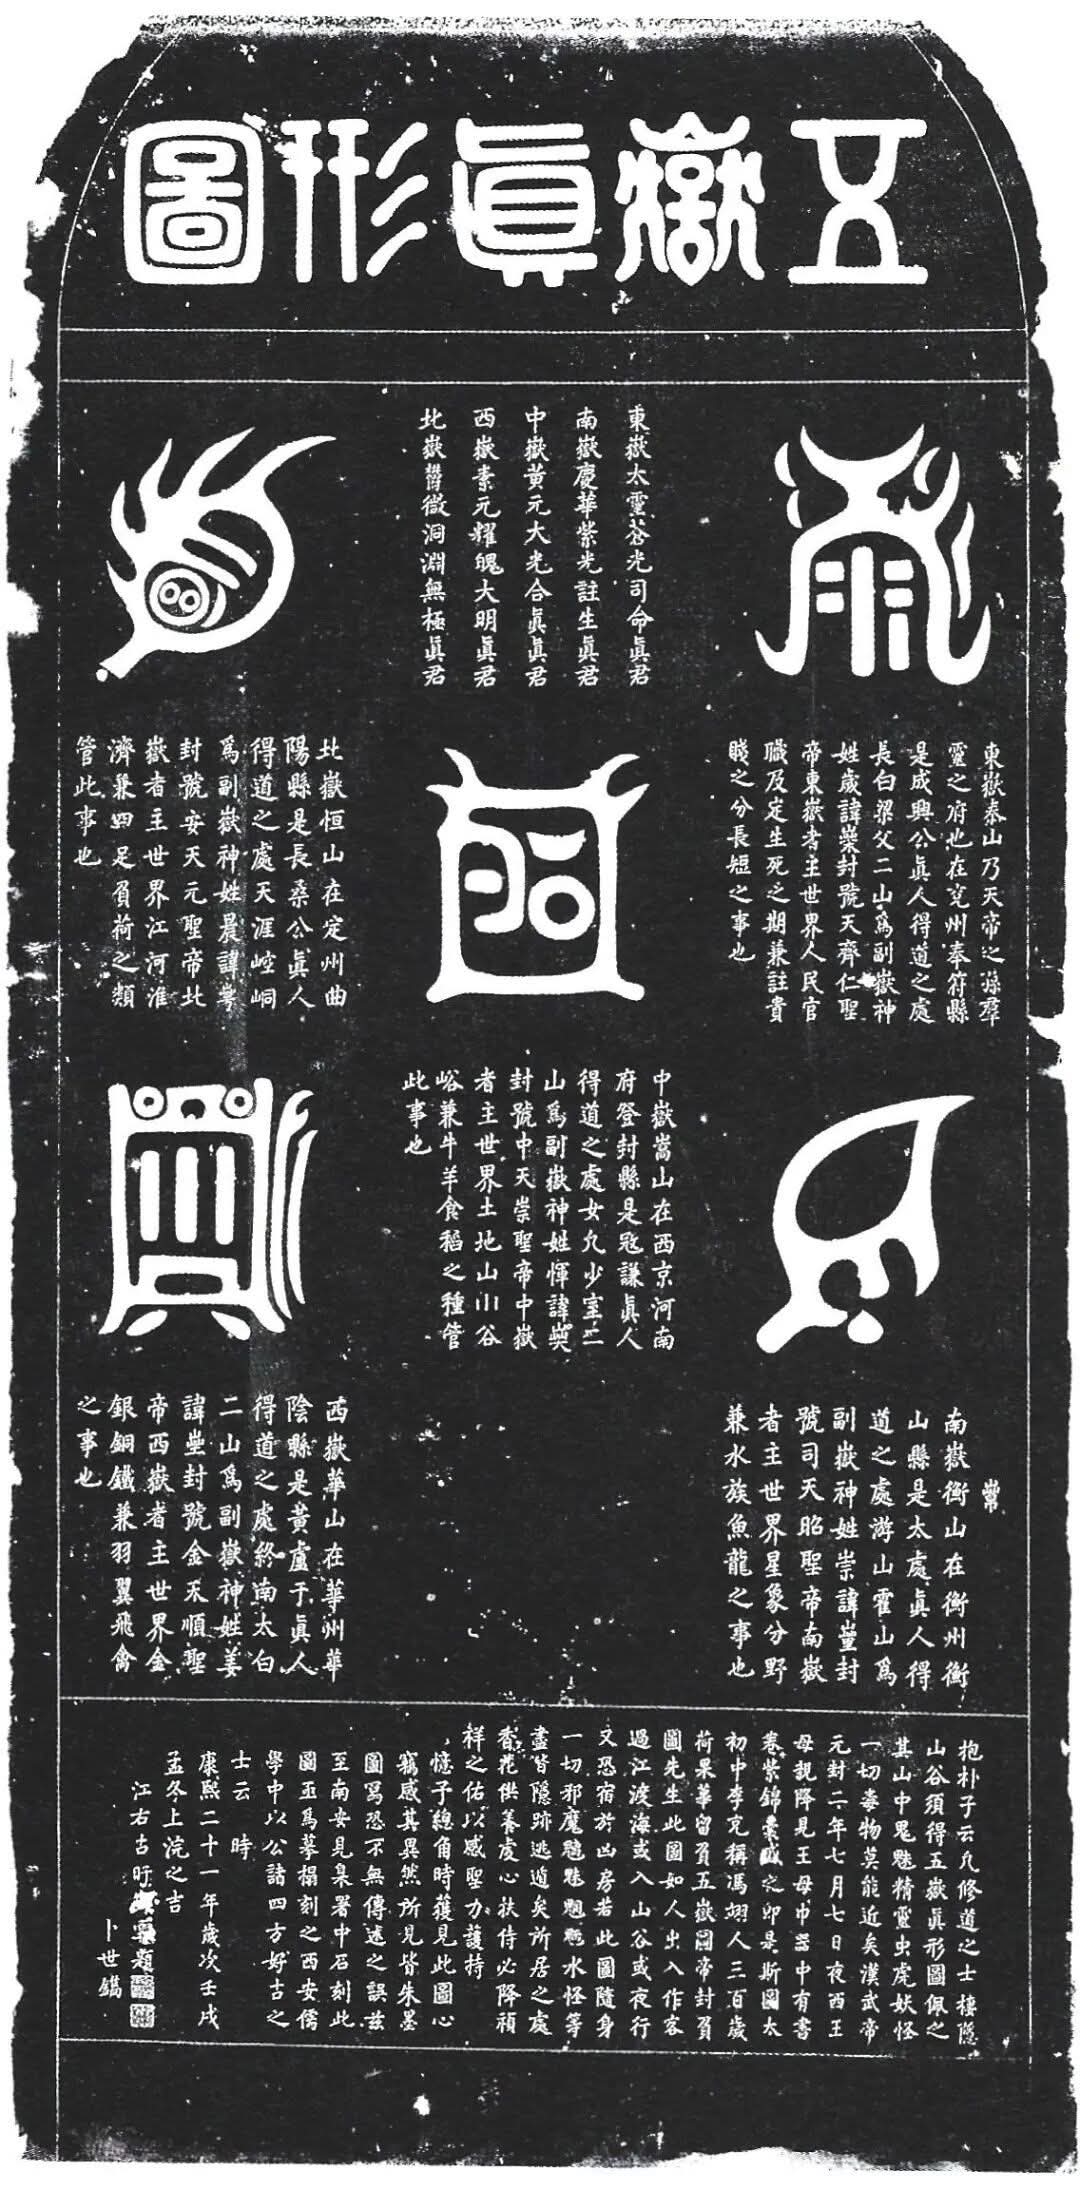 五嶽眞形圖
東嶽太靈蒼光司命眞君
南嶽慶華紫光註生眞君
中嶽黃元大光合眞眞君
西嶽素元耀魄大明眞君
北嶽欝微洞淵無極眞君
東嶽泰山乃天帝之孫羣
靈之府也在兗州奉符縣
是成興公眞人得道之處
長白梁父二山爲副嶽神
姓歲諱崇封號天齊仁聖
帝東嶽者主世界人民官
職及定生死之期兼註貴
賤之分長短之事也
北嶽恒山在定州曲
陽縣是長桑公眞人
得道之處天涯崆峒
爲副嶽神姓晨諱
封號安天元聖帝北
嶽者主世界江河淮
濟兼四足負荷之類
管此事也
中嶽嵩山在西京河南
府登封縣是寇謙眞人
得道之處女几少室二
山爲副嶽神姓惲諱
封號中天崇聖帝中嶽
者主世界土地山川谷
峪兼牛羊食稻之種管
此事也
南嶽衡山在衡州衡
山縣是太處眞人得
道之處游山霍山爲
副嶽神姓崇諱封
號司天昭聖帝南嶽
者主世界星象分野
兼水族魚龍之事也
西嶽華山在華州華
陰縣是黃盧子眞人
得道之處終南太白
二山爲副嶽神姓姜
諱壘封號金天順聖
帝西嶽者主世界金
銀銅鐵兼羽翼飛禽
之事也
抱朴子云凡修道之士棲隱
山谷須得五嶽眞形圖佩之
其山中鬼魅精靈虫虎妖怪
一切毒物莫能近矣漢武帝
元封二年七月七日夜西王
母親降見王母巾器中有書
卷紫錦囊盛之卽是斯圖太
初中李充稱馮翊人三百歲
荷果華留負五嶽圖帝封負
圖先生此圖如人出入作客
過江渡海或入山谷或夜行
又恐宿於凶房若此圖隨身
一切邪魔魑魅魍魎水怪等
盡皆隱跡逃遁矣所居之處
香花供養虔心扶侍必降禎
祥之佑以感聖力護持
憶予總角時獲見此圖心
竊感其異然所見皆朱墨
圖寫恐不無傳述之誤茲
至南安見臬署中石刻此
圖亟爲摹搨刻之西安儒
學中以公諸四方好古之
士云 時
康熙二十一年歲次壬戌
孟冬上浣之吉
江右古盱題
卜世鐫